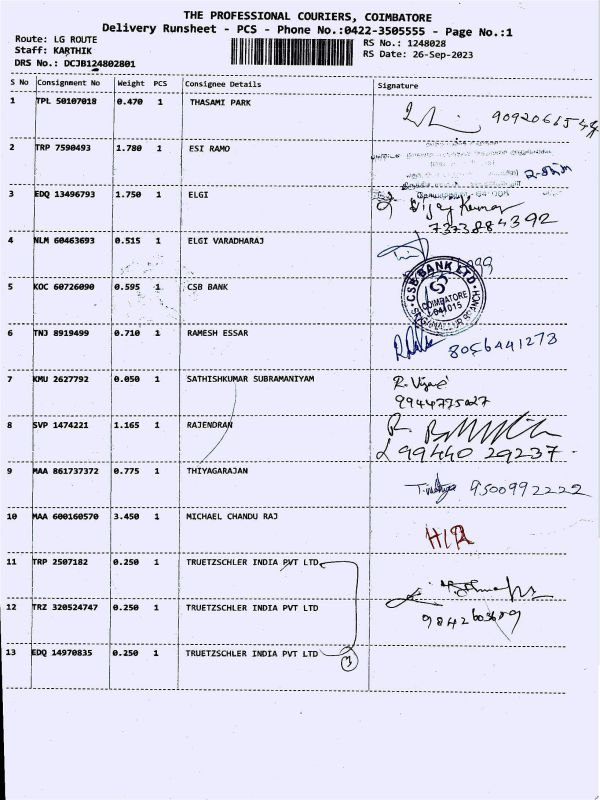 THE PROFESSIONAL COURIERS, COIMBATORE
Delivery Runsheet - PCS - Phone No.:0422-3505555 - Page No.:1
Route: LG ROUTE
Staff: KARTHIK
DRS No.: DCJB124802801
RS No.: 1248028
RS Date: 26-Sep-2023
S No Consignment No Weight PCS Consignee Details Signature
1 TPL 50107018 0.470 1 THASAMI PARK
2 TRP 7590493 1.780 1 ESI RAMO
3 EDQ 13496793 1.750 1 ELGI Vijay Kumar
7373884392
4 NLM 60463693 0.515 1 ELGI VARADHARAJ
5 KOC 60726090 0.595 1 CSB BANK CSB BANK LTD
COIMBATORE
641015
6 TNJ 8919499 0.710 1 RAMESH ESSAR 8056441273
7 KMU 2627792 0.050 1 SATHISHKUMAR SUBRAMANIYAM R. Vijay
9944775027
8 SVP 1474221 1.165 1 RAJENDRAN R.
99440 29237
9 MAA 861737372 0.775 1 THIYAGARAJAN 9500992222
10 MAA 600160570 3.450 1 MICHAEL CHANDU RAJ
11 TRP 2507182 0.250 1 TRUETZSCHLER INDIA PVT LTD
12 TRZ 320524747 0.250 1 TRUETZSCHLER INDIA PVT LTD
13 EDQ 14970835 0.250 1 TRUETZSCHLER INDIA PVT LTD 3